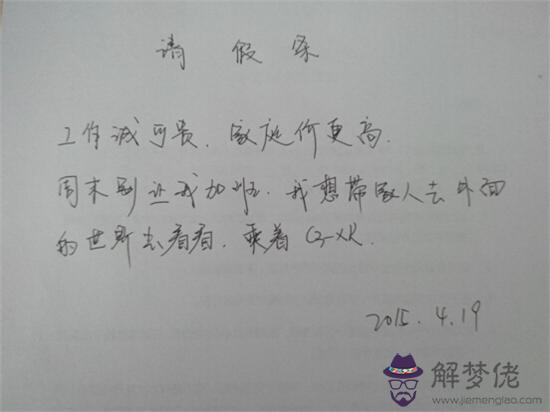 请假条
工作诚可贵，家庭价更高.
周末别让我加班. 我想带家人去外面
的世界去看看，乘着
2015.4.19
解梦佬
www.jiemenglao.com